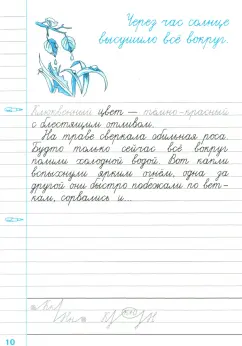 Через час солнце
высушило всё вокруг.
Клюквенный цвет — тёмно-красный
с блестящим отливом.
На траве сверкала обильная роса.
Будто только сейчас всё вокруг
полили холодной водой. Вот капли
вспыхнули ярким огнём, одна за
другой они быстро побежали по вет-
кам, сорвались и...
10